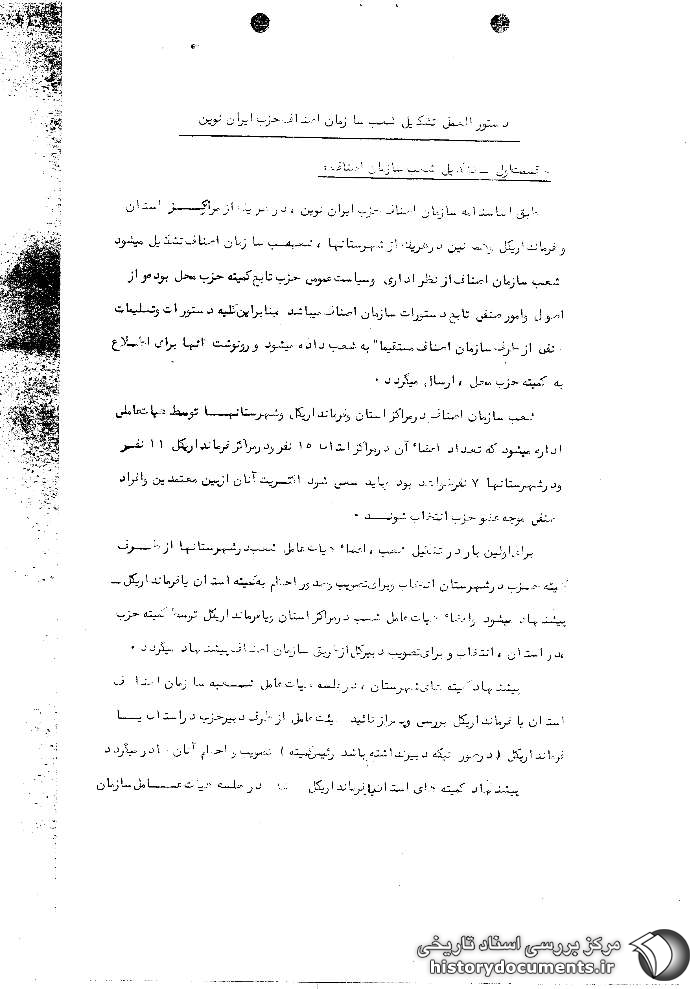 دستور العمل تشکیل شعب سازمان اصناف حزب ایران نوین
قسمت اول ــ تشکیل شعب سازمان اصناف :
طبق اساسنامه سازمان اصناف حزب ایران نوین ، در هریک از مراکز استان
و فرمانداریکل و همچنین در هریک از شهرستانها ، شعب سازمان اصناف تشکیل میشود
شعب سازمان اصناف از نظر اداری وسیاست عمومی حزب تابع کمیته حزب محل بوده و از
اصول وامور صنفی تابع دستورات سازمان اصناف میباشد بنابراین کلیه دستورات وتعلیمات
صنفی از طرف سازمان اصناف مستقیما" به شعب داده میشود و رونوشت آنها برای اطلاع
به کمیته حزب محل ، ارسال میگردد .
شعب سازمان اصناف در مراکز استان وفرمانداریکل وشهرستانهـا توسط هیات عاملی
اداره میشود که تعداد اعضاء آن در مراکز استان ۱۵ نفر ودر مراکز فرمانداریکل ۱۱ نفـر
ودر شهرستانها ۷ نفر خواهد بود باید سعی شود اکثریت آنان از بین معتمدین وافراد
صنفی موجه عضو حزب انتخاب شونـد .
برای اولین بار در تشکیل شعب ، اعضاء هیات عامل شعب در شهرستانها از طـرف
کمیته حـزب در شهرستان انتخاب وبرای تصویب وصدور احکام به کمیته استان یا فرمانداریکل ــ
پیشنهاد میشود واعضاء هیات عامل شعب در مراکز استان ویا فرمانداریکل توسط کمیته حزب
در استان ، انتخاب و برای تصویب دبیرکل از طریق سازمان اصناف پیشنهاد میگردد .
پیشنهاد کمیته های شهرستان ، در جلسه هیات عامل شعبه سازمان اصناف
استان یا فرمانداریکل بررسی وپس از تائید هیئت عامل از طرف دبیر حزب در استان یـا
فرمانداریکل ( در صورتیکه دبیر نداشته باشد رئیس کمیته ) تصویب و احکام آنان صادر میگردد
پیشنهاد کمیته های استان یا فرمانداریکل در جلسه هیات عامل سازمان
مرکز بررسی اسناد تاریخی
historydocuments.ir